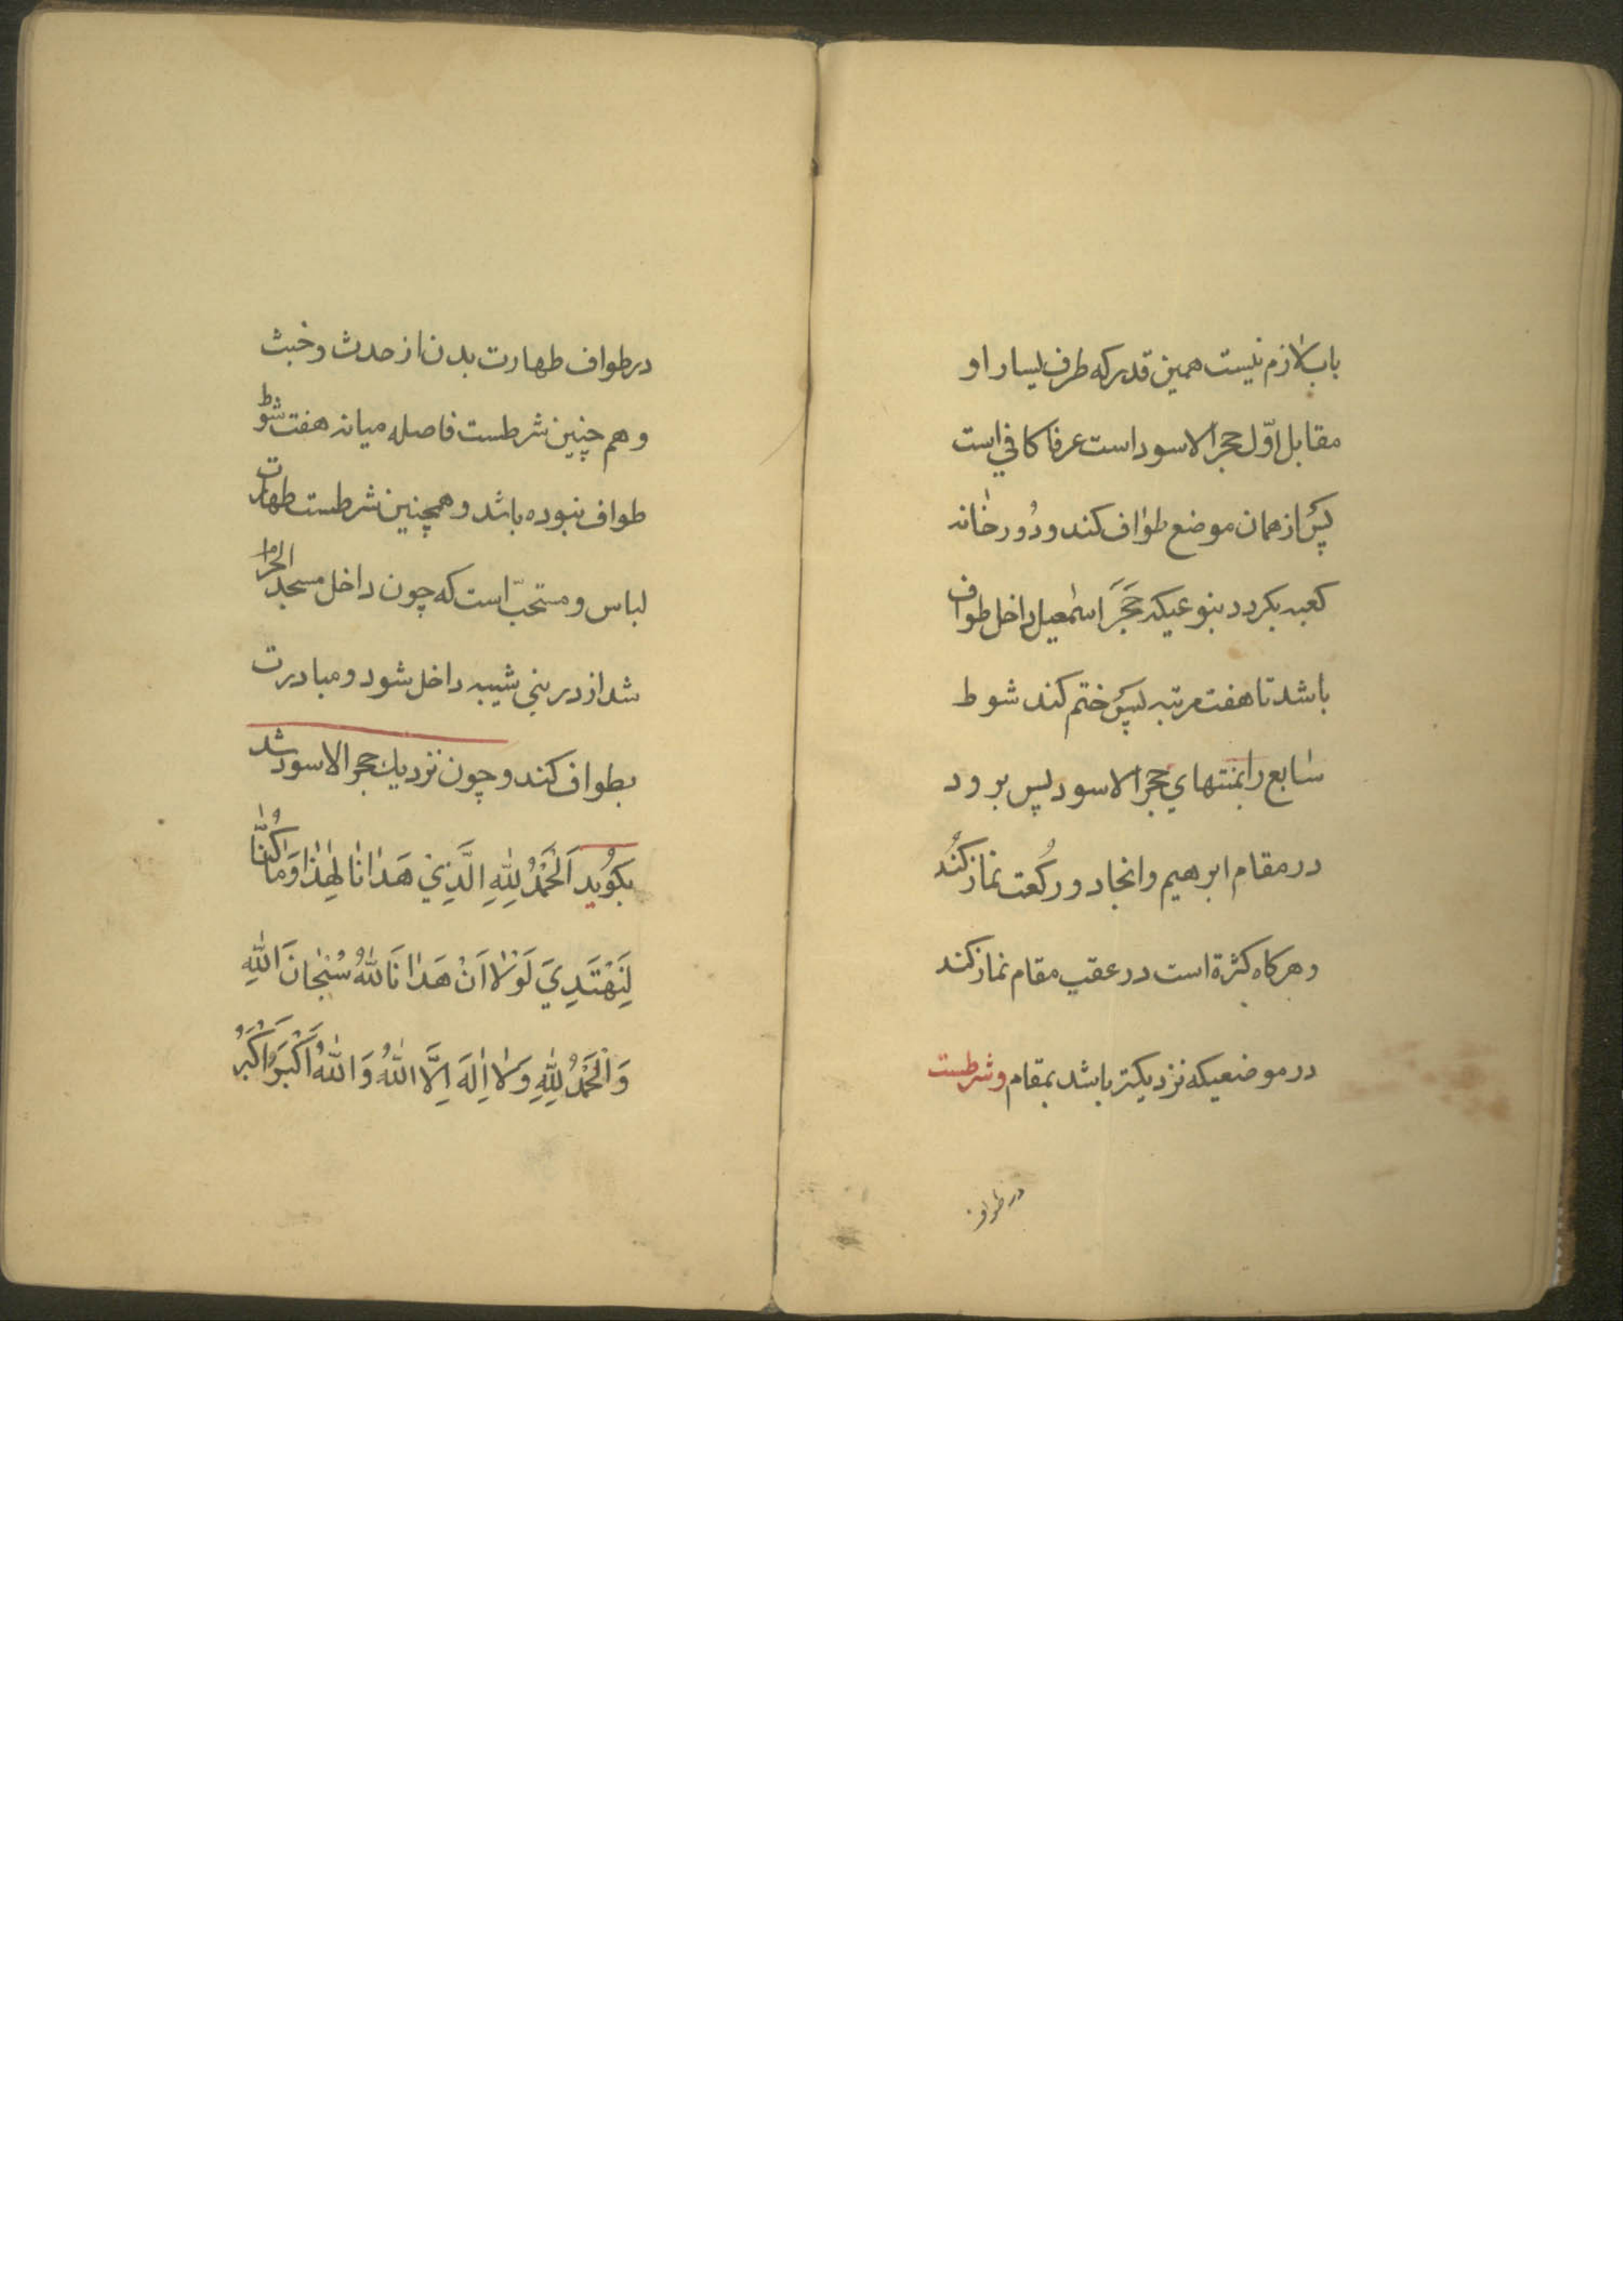 باب لازم نیست همین قدر که طرف یسار او
مقابل اوّل حجر الاسود است عرفا کافي است
پس از همان موضع طواف کند و دُور خانه
کعبه بکردد بنوعیکه حَجَرَ اسمعیل داخل طواف
باشد تا هفت مرتبه پس ختم کند شوط
سابع را بمنتهاي حجر الاسود پس برود
در مقام ابرهیم و انجا دو رکعت نماز کند
و هرکاه کثرة است در عقب مقام نماز کند
در موضعیکه نزدیکتر باشد بمقام و شرطست
در طواف
در طواف طهارت بدن از حدث و خبث
و هم چنین شرطست فاصله میانه هفت شوط
طواف نبوده باشد و همچنین شرطست طهارت
لباس و مستحبّ است که چون داخل مسجد الحرام
شد از در بني شیبه داخل شود و مبادرت
بطواف کند و چون نزدیك حجر الاسود شد
بکوید اَلْحَمْدُ لِلّٰهِ الَّذِي هَدٰانٰا لِهٰذٰا وَمٰا کُنّٰا
لِنَهْتَدِيَ لَوْلٰا اَنْ هَدٰانَا اللّٰهُ سُبْحٰانَ اللّٰهِ
وَالْحَمْدُ لِلّٰهِ وَلٰا اِلٰهَ اِلَّا اللّٰهُ وَاللّٰهُ اَکْبَرُ اَکْبَرُ